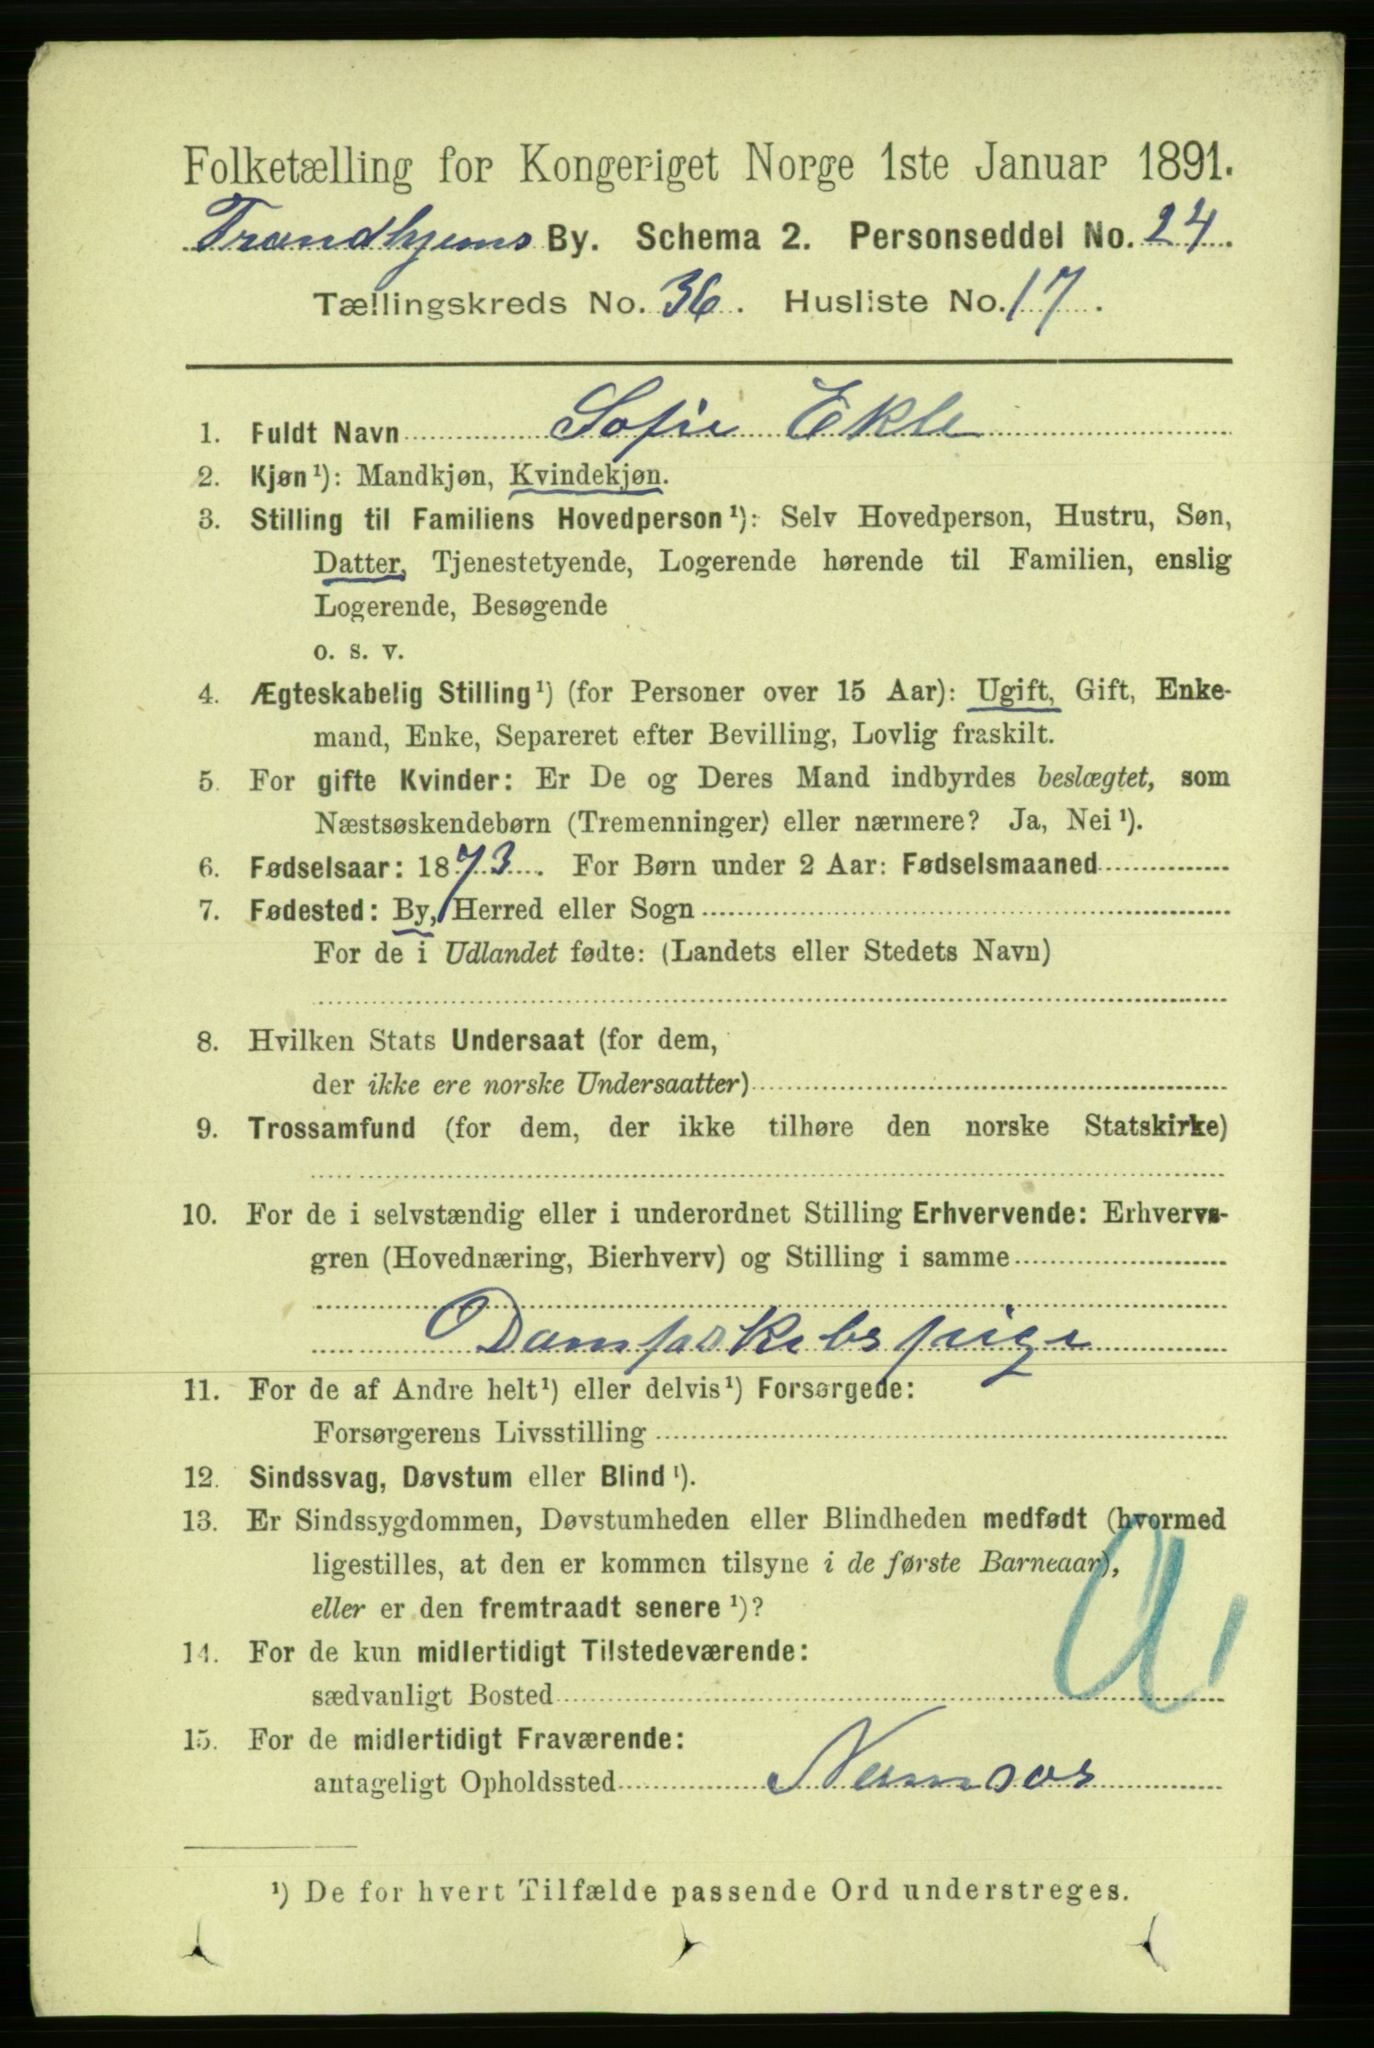 Folketælling for Kongeriget Norge 1ste Januar 1891.
Trondhjems By. Schema 2. Personseddel No. 24.
Tællingskreds No. 36. Husliste No. 17.
1. Fuldt Navn Sofie Ekle
2. Kjøn ¹): Mandkjøn, Kvindekjøn.
3. Stilling til Familiens Hovedperson ¹): Selv Hovedperson, Hustru, Søn,
Datter, Tjenestetyende, Logerende hørende til Familien, enslig
Logerende, Besøgende
o. s. v.
4. Ægteskabelig Stilling ¹) (for Personer over 15 Aar): Ugift, Gift, Enke-
mand, Enke, Separeret efter Bevilling, Lovlig fraskilt.
5. For gifte Kvinder: Er De og Deres Mand indbyrdes beslægtet, som
Næstsøskendebørn (Tremenninger) eller nærmere? Ja, Nei ¹).
6. Fødselsaar: 1873. For Børn under 2 Aar: Fødselsmaaned
7. Fødested: By, Herred eller Sogn
For de i Udlandet fødte: (Landets eller Stedets Navn)
8. Hvilken Stats Undersaat (for dem,
der ikke ere norske Undersaatter)
9. Trossamfund (for dem, der ikke tilhøre den norske Statskirke)
10. For de i selvstændig eller i underordnet Stilling Erhvervende: Erhvervs-
gren (Hovednæring, Bierhverv) og Stilling i samme
Dampskibspige
11. For de af Andre helt ¹) eller delvis ¹) Forsørgede:
Forsørgerens Livsstilling
12. Sindssvag, Døvstum eller Blind ¹).
13. Er Sindssygdommen, Døvstumheden eller Blindheden medfødt (hvormed
ligestilles, at den er kommen tilsyne i de første Barneaar),
eller er den fremtraadt senere ¹)?
14. For de kun midlertidigt Tilstedeværende:
sædvanligt Bosted
15. For de midlertidigt Fraværende:
antageligt Opholdssted Namsos
¹) De for hvert Tilfælde passende Ord understreges.